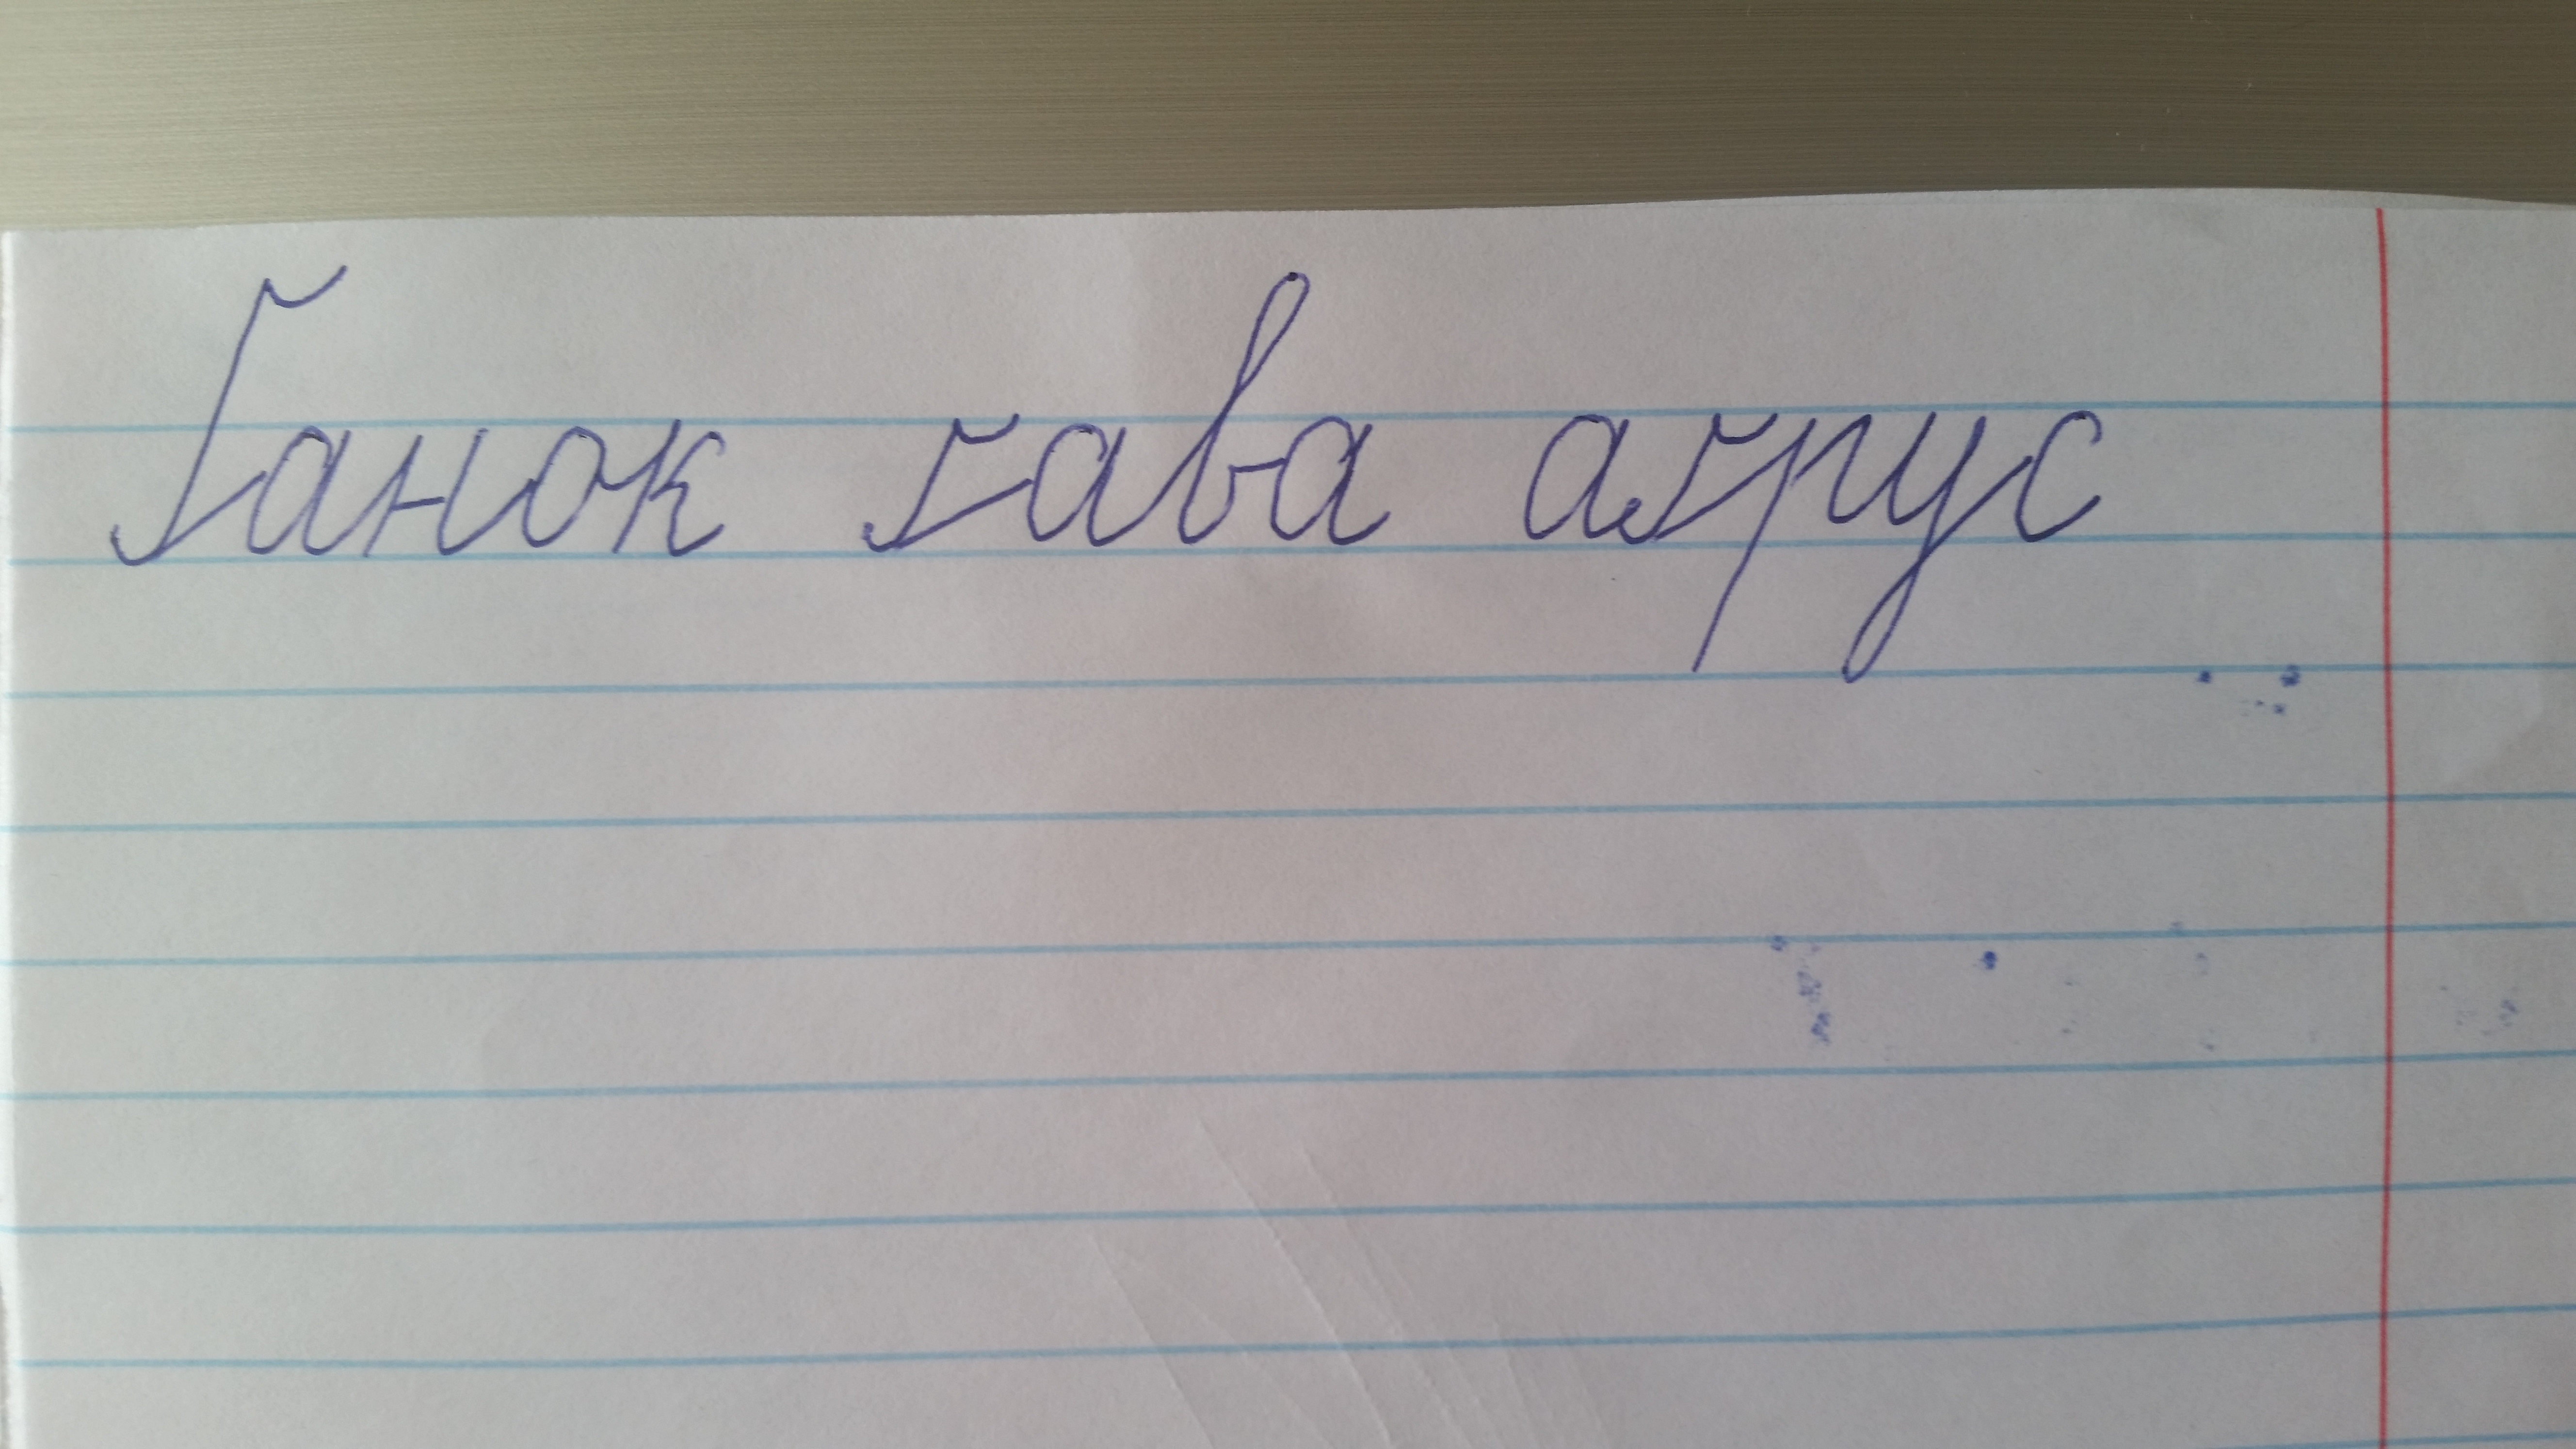 Ґанок ґава аґрус